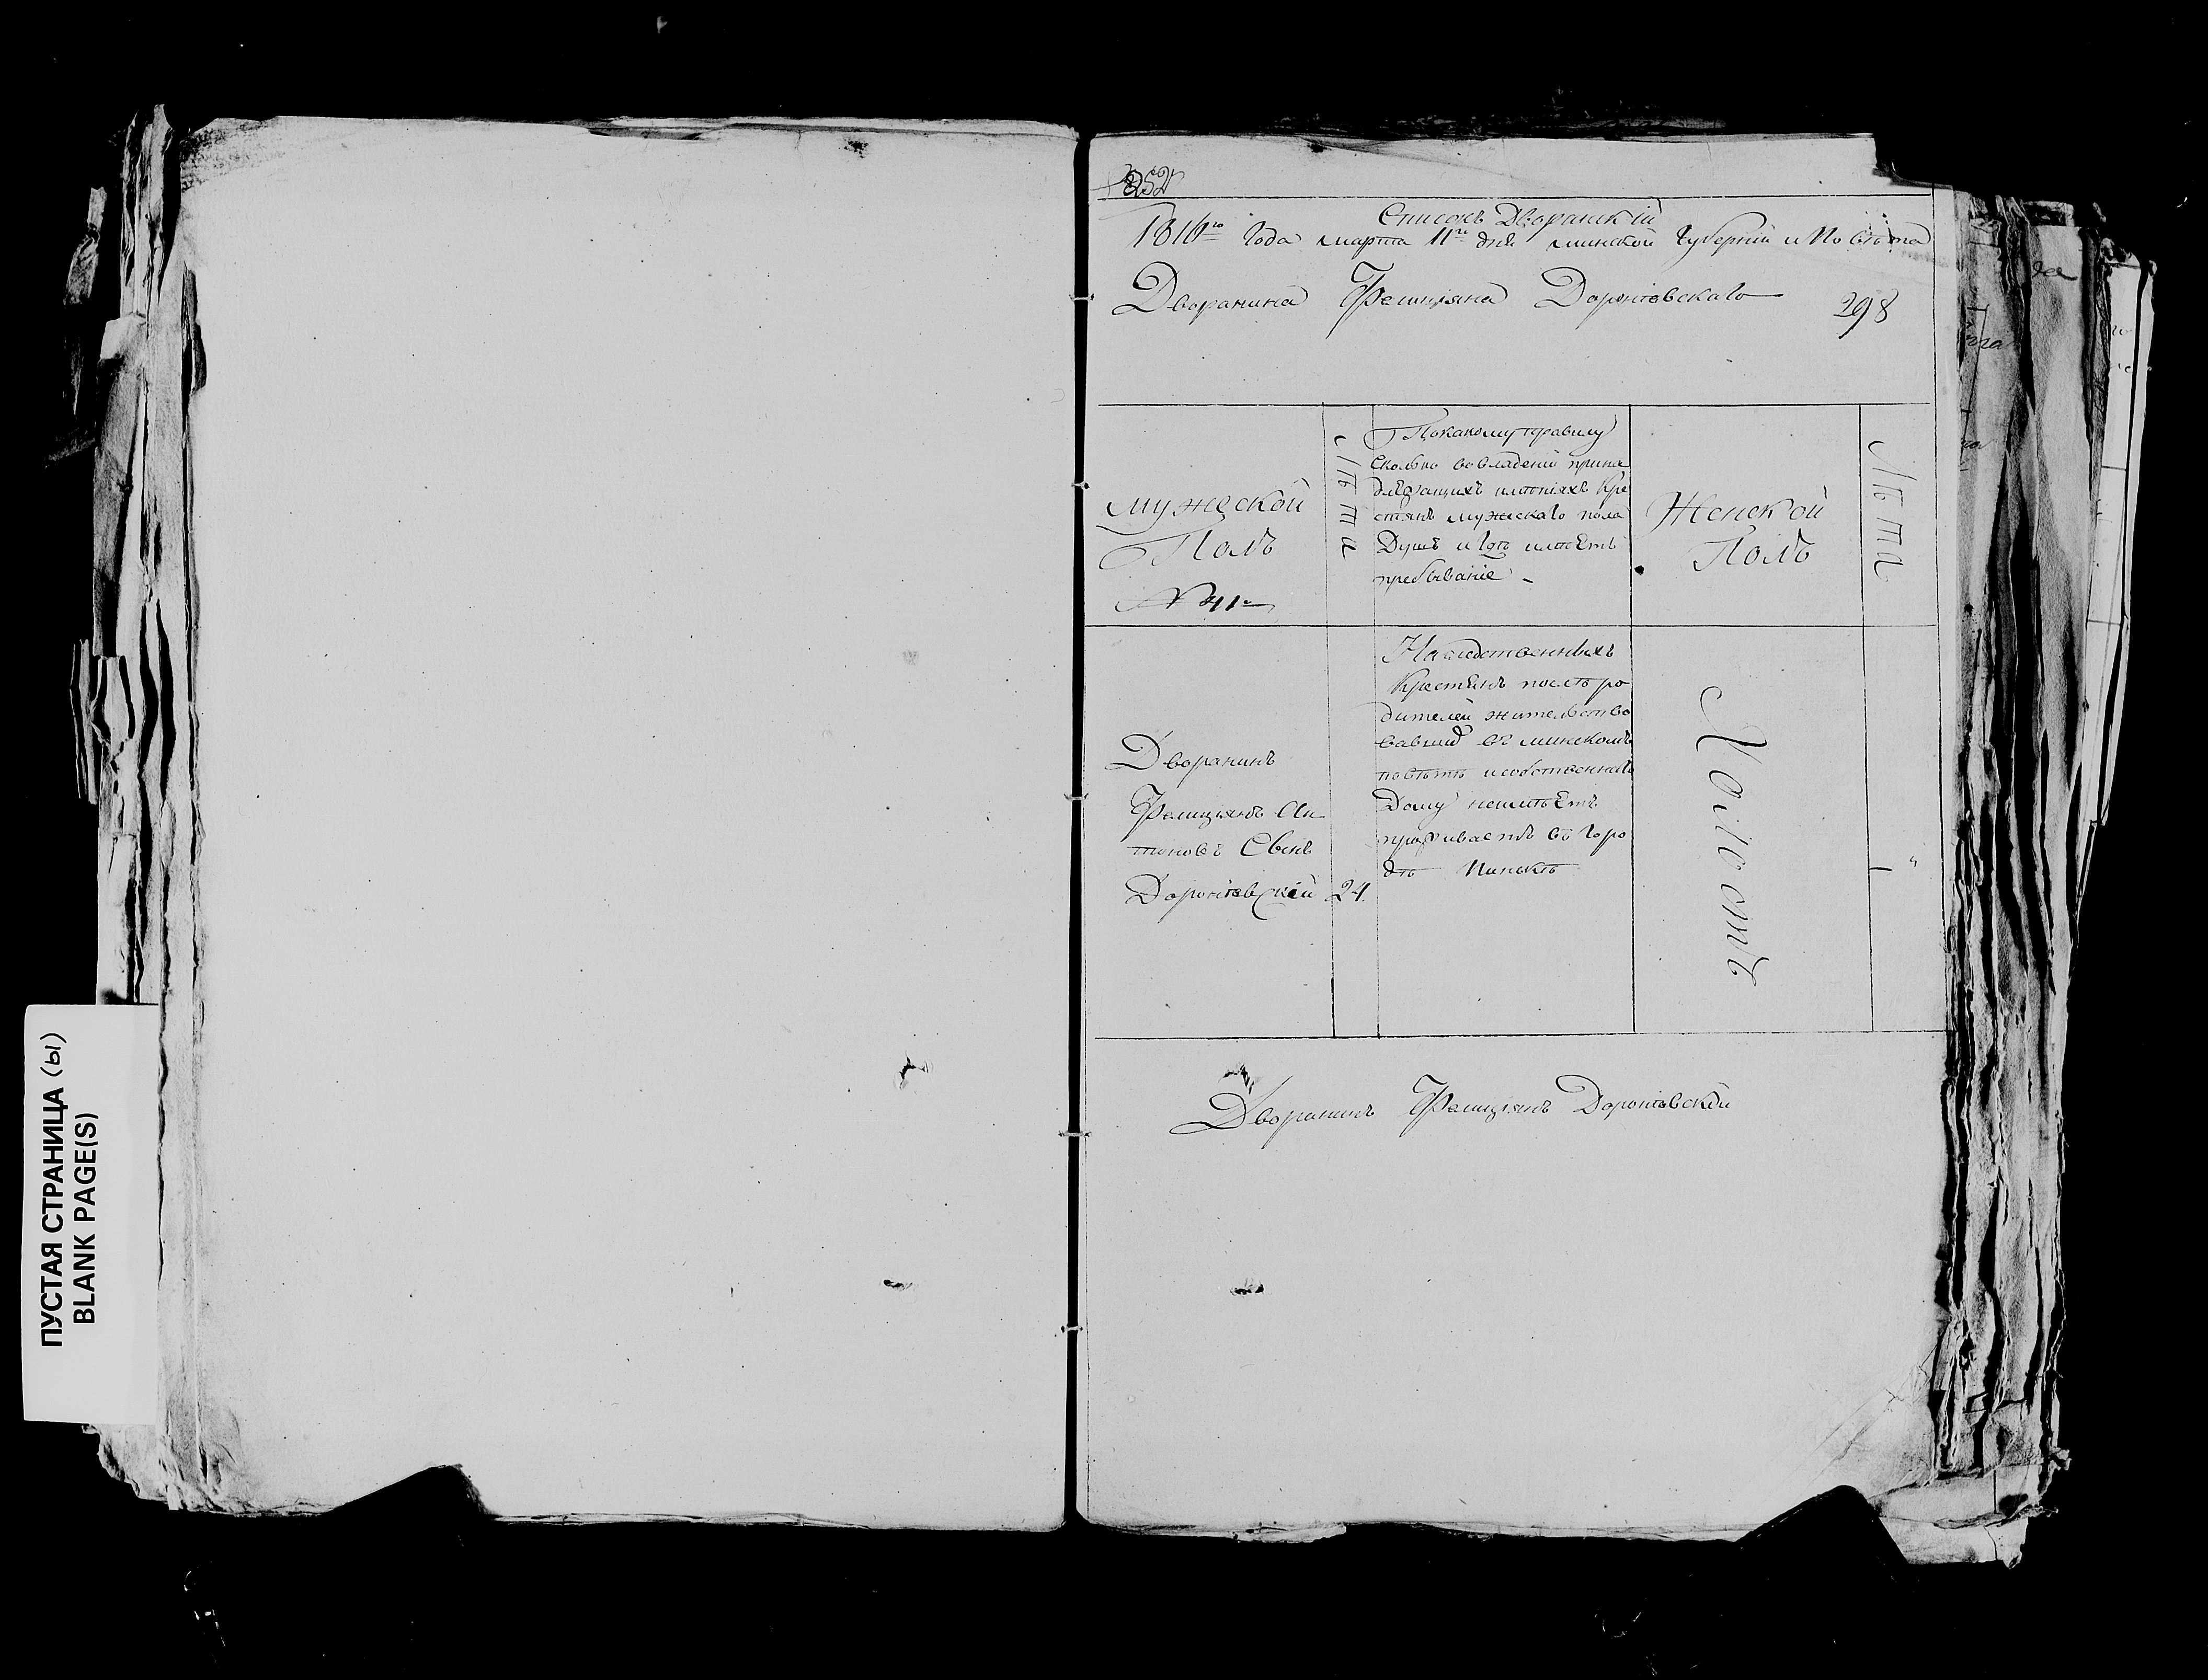 ПУСТАЯ СТРАНИЦА (Ы)
BLANK PAGE(S)
352
Списокъ Дворянскій
года марта 11го дня минской Губерніи и Повѣта
Дворянина Фелиціяна Доронговскаго
298
мужеской
Полъ
№ 41
Лѣта
По какому правилу
сколко во владеніи прина
длежащихъ имѣніяхъ Кре
стянъ мужескаго пола
Душъ и где имѣетъ
пребываніе
Женской
Полъ
Лѣта
Дворянинъ
Фелиціянъ Ан
тоновъ Сынъ
Доронговскій
24
Наследственныхъ
Крестянъ послѣ ро
дителей жителство
вавшихъ въ минскомъ
повѣтѣ и собственнаго
Дому неимѣетъ
проживаетъ въ горо
дѣ Минскѣ
Холостъ
Дворянинъ Фелиціянъ Доронговской